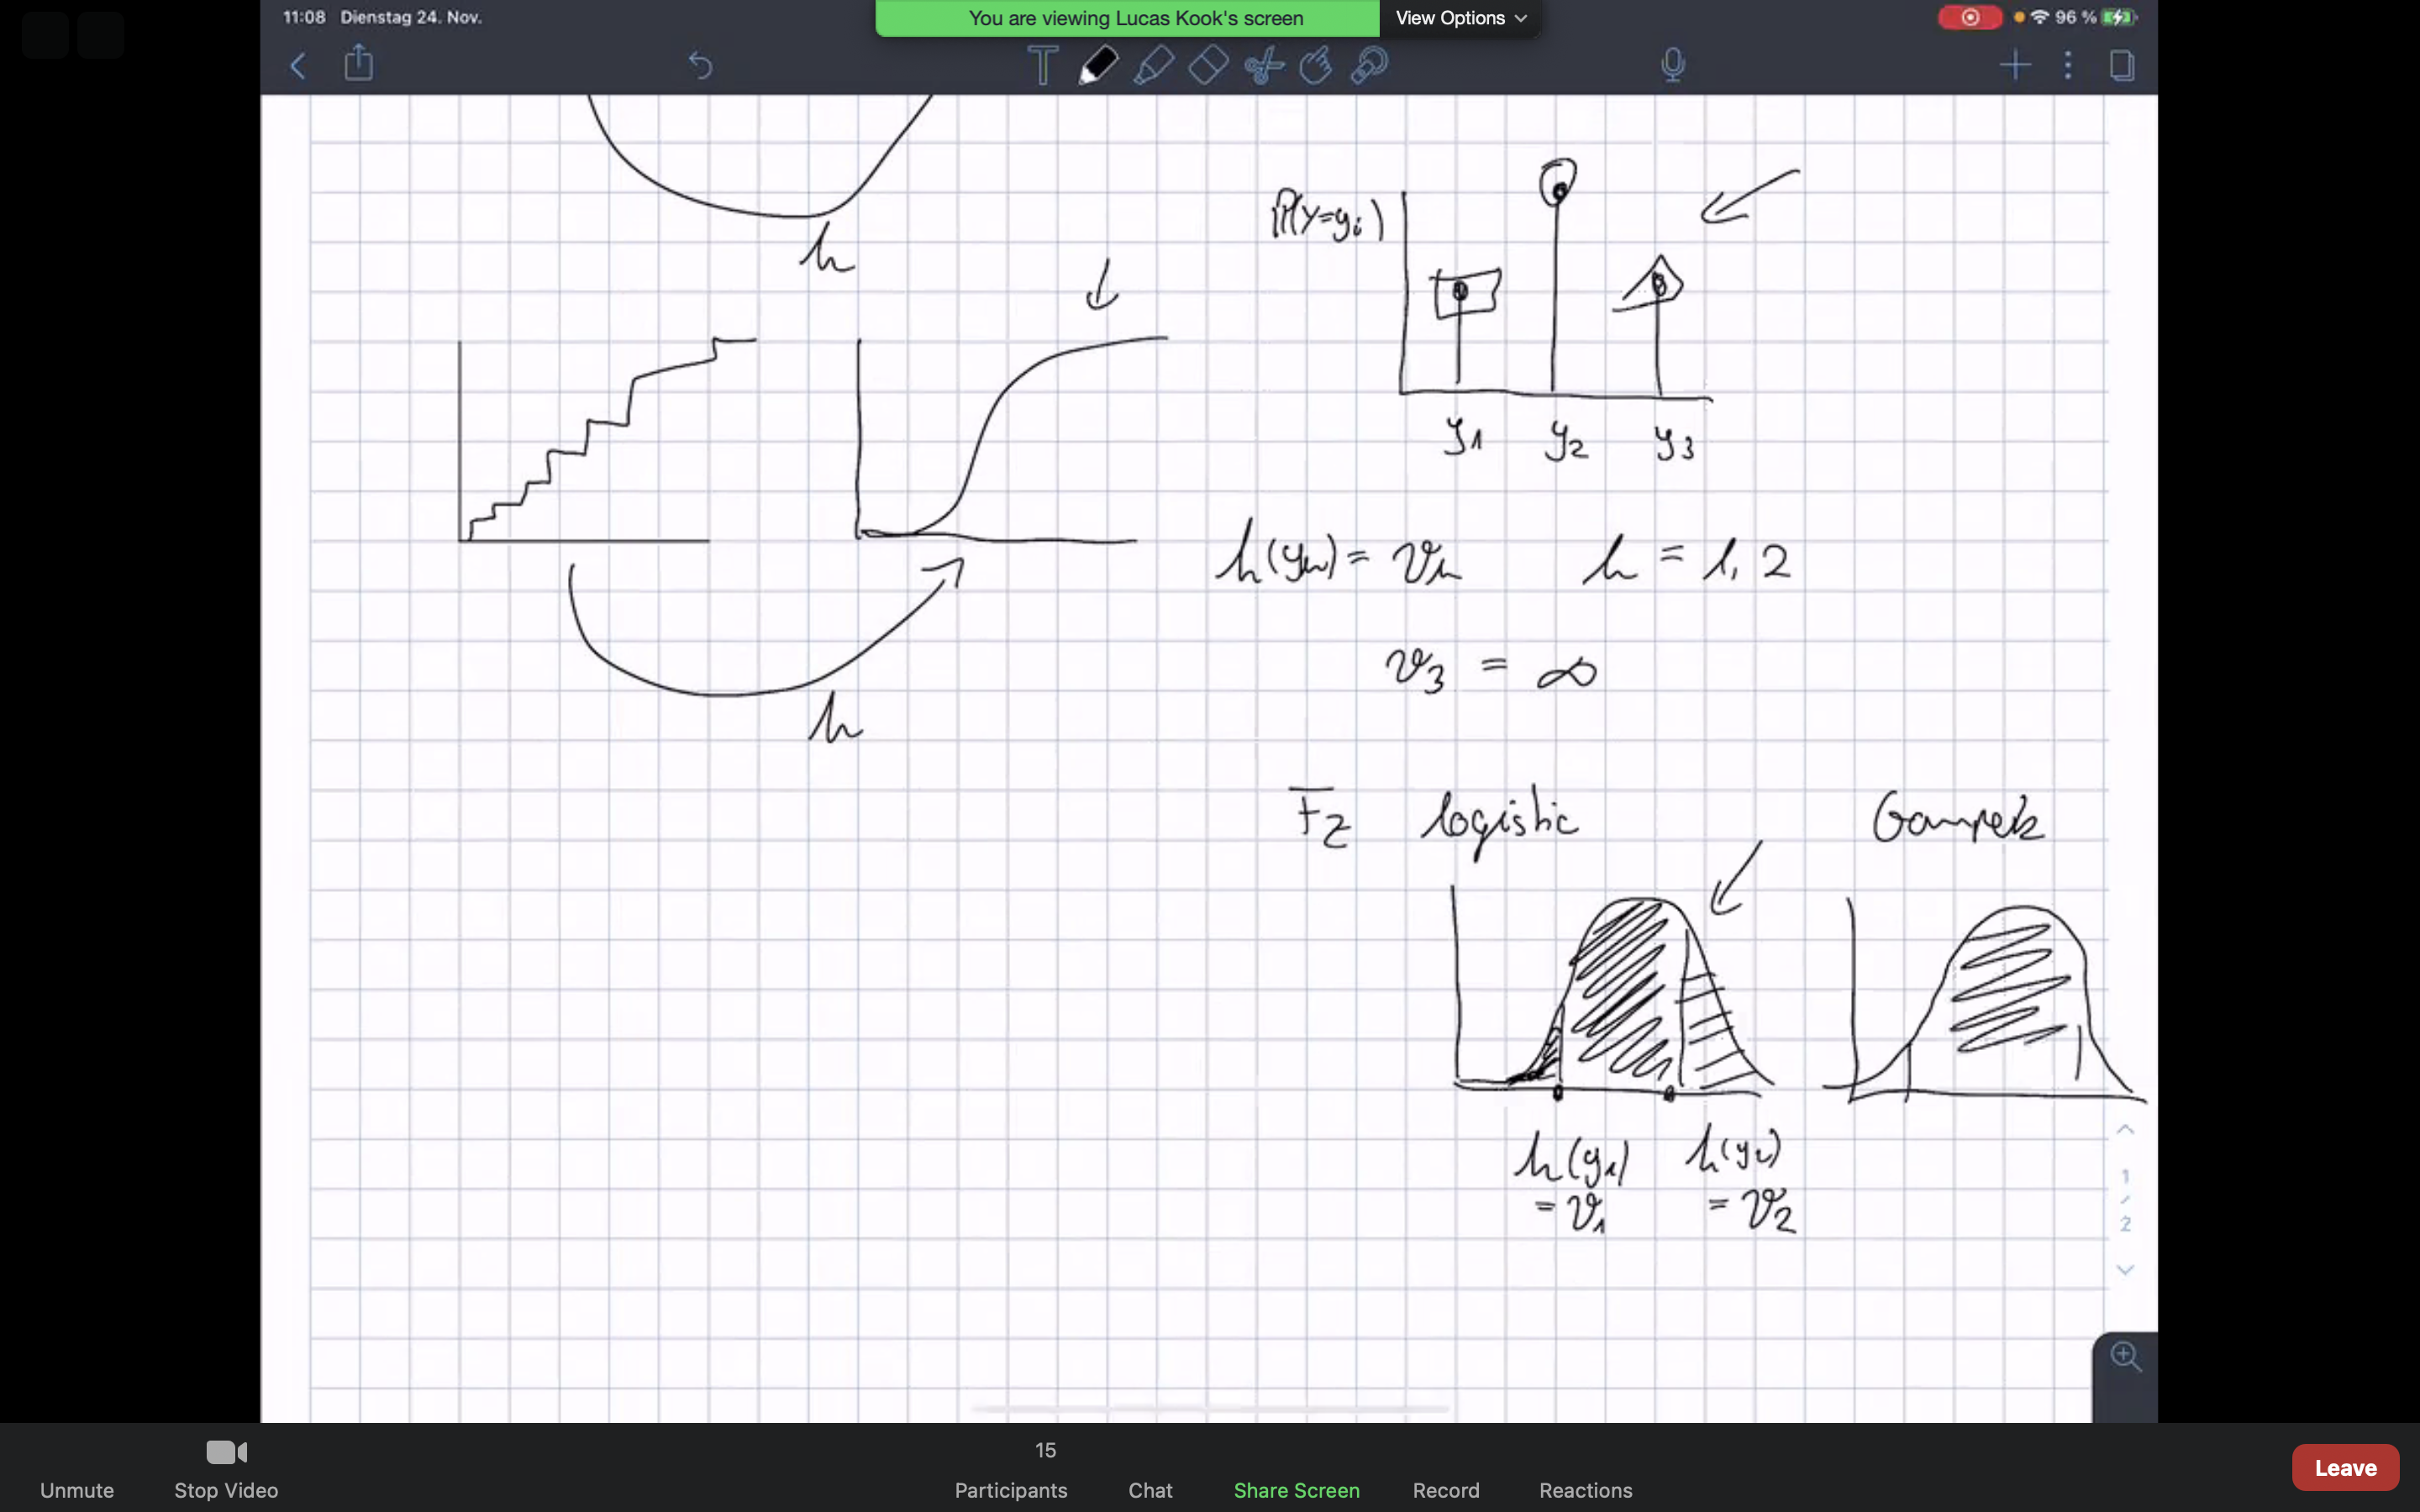 11:08 Dienstag 24. Nov.
You are viewing Lucas Kook's screen
View Options
96 %
h
P(Y=yi)
y1 y2 y3
h(yk) = ϑk k = 1, 2
ϑ3 = ∞
h
FZ logistic Gompertz
h(y1) h(y2)
= ϑ1 = ϑ2
1
2
Unmute
Stop Video
15
Participants
Chat
Share Screen
Record
Reactions
Leave